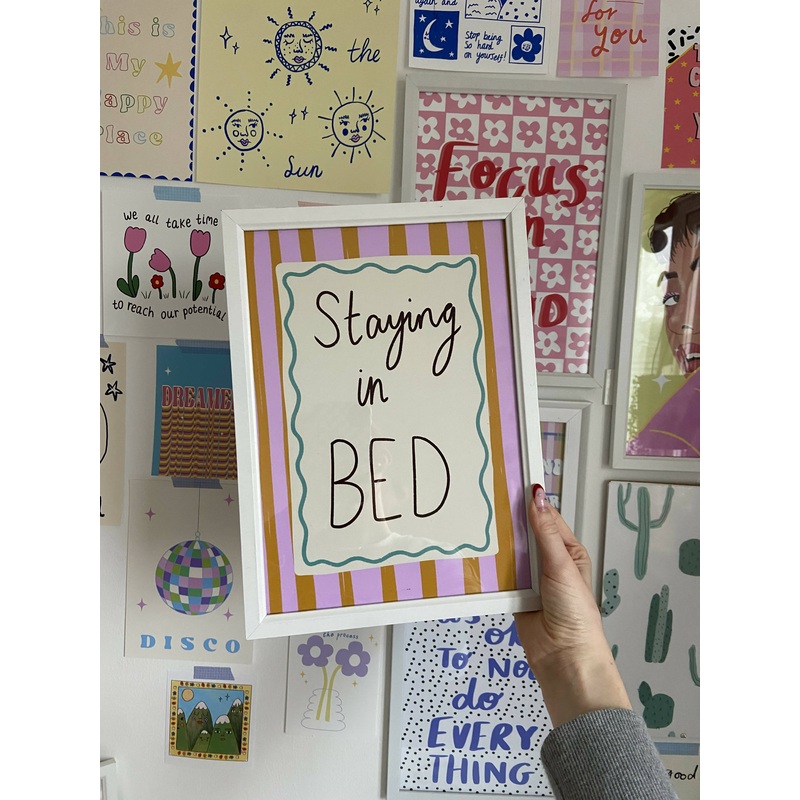 his is
My
appy
lace
the
Sun
again and
Stop being
so hard
on yourself!
for
you
Focus
we all take time
to reach our potential
Staying
in
BED
DREAME
DISCO
the process
OK
TO NO
do
EVERY
THING
good